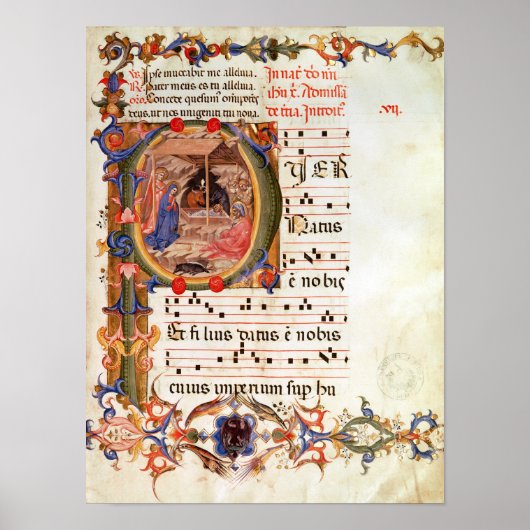 ℣. Ipse invocabit me alleluia.
℟. Pater meus es tu alleluia.
oro. Concede quesumus omnipotens
deus. ut nos unigeniti tui nova
In nat. do nri
ihu x. Ad missa
de tcia. Introit. .vij.
P
VER
Natus
ē nobis
Et fi lius datus ē nobis
cuius imperium sup hu